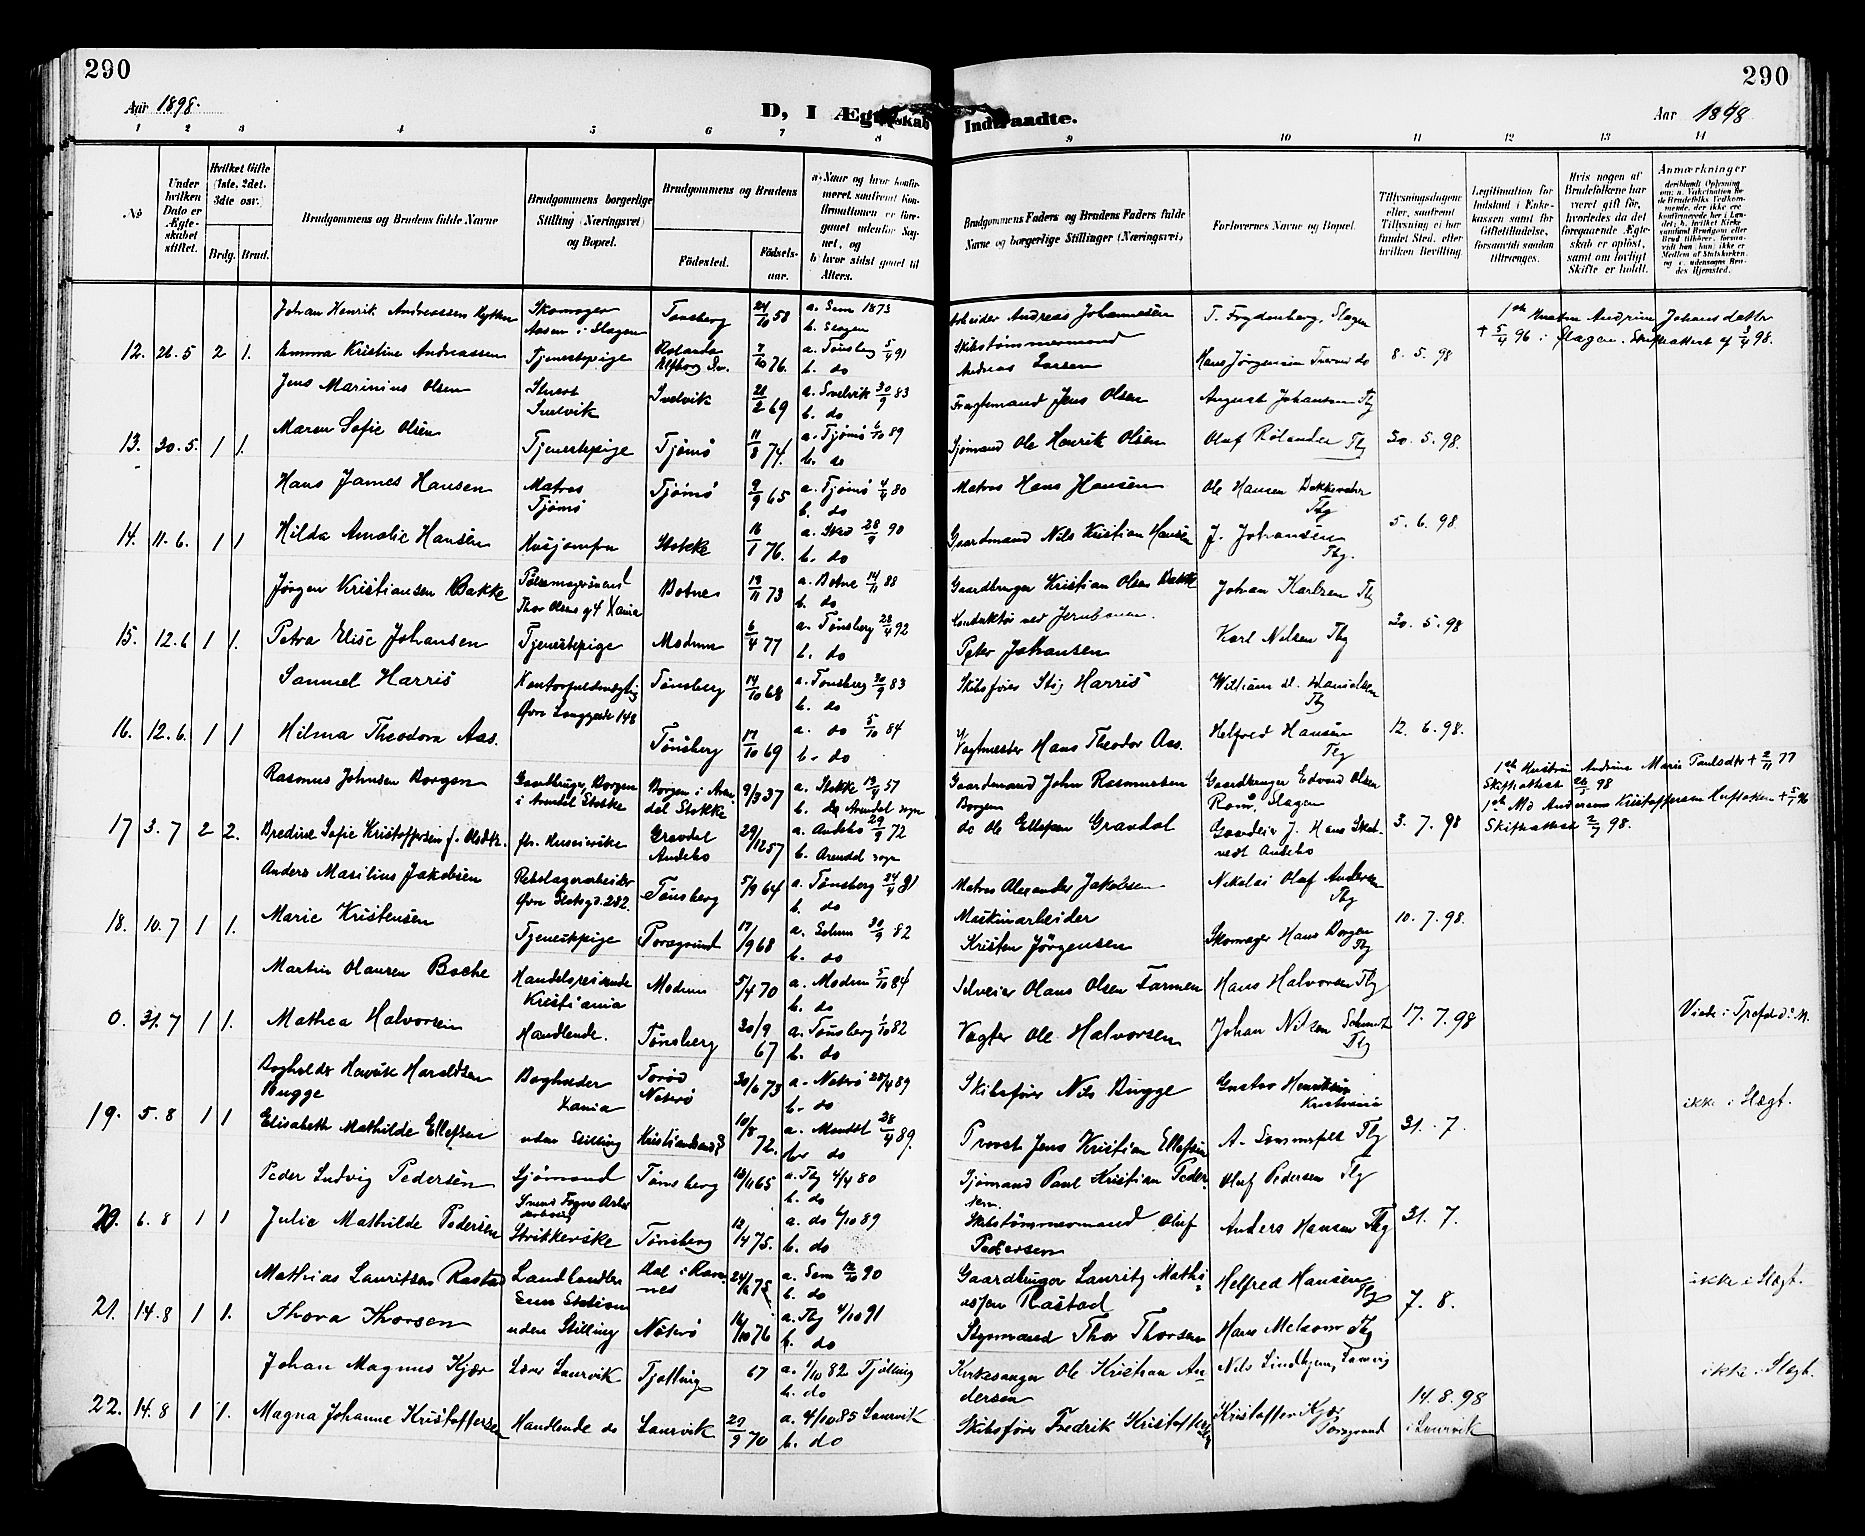 290
290
Aar 1898.
D, I Ægteskab Indtraadte.
Aar 1898
1 2 3 4 5 6 7 8 9 10 11 12 13 14
No
Under hvilken Dato er Ægteskabet stiftet.
Hvilket Gifte (1ste, 2det, 3die osv.)
Brdg. Brud.
Brudgommens og Brudens fulde Navne
Brudgommens borgerlige Stilling (Næringsvei) og Bopæl.
Brudgommens og Brudens
Fødested.
Fødselsaar.
a) Naar og hvor konfirmeret, saafremt Konfirmationen er foregaaet udenfor Sognet, og
b) hvor sidst gaaet til Alters.
Brudgommens Faders og Brudens Faders fulde Navne og borgerlige Stillinger (Næringsvei)
Forlovernes Navne og Bopæl.
Tillysningsdagene eller, saafremt Tillysning ei har fundet Sted, efter hvilken Bevilling.
Legitimation for Indskud i Enkekassen samt for Giftetilladelse, forsaavidt saadan tiltrænges.
Hvis nogen af Brudefolkene har været gift før, hvorledes da det foregaaende Ægteskab er opløst, samt om lovligt Skifte er holdt.
Anmærkninger
Johan Henrik Andreassen Skomager Aasen i Slagen Tønsberg 24/10 58 a. Sem 1873 b. Slagen Arbeider Andreas Johannesen T. Frydenberg, Slagen
1ste Hustru Andrine Johansdatter + 5/4 96 i Slagen. Skifteattest af 3/4 98.
12. 26.5 2 1. Emma Kristine Andreassen Tjenestepige 7/10 76. a. Tønsberg 5/4 91 b. do Skibstømmermand Andreas Larsen Hans Jørgensen 8. 5. 98
Jens Marinius Olsen Svelvik Svelvik 21/2 69 a. Svelvik 30/9 83 b. do Fragtemand Jens Olsen August Johansen Tbg
13. 30.5. 1 1. Maren Sofie Olsen Tjenestepige Tjømø 11/8 74. a. Tjømø 6/10 89 b. do Sjømand Ole Henrik Olsen Oluf Rølander Tbg 30. 5. 98.
Hans James Hansen Matros Tjømø Tjømø 9/9 65 a. Tjømø 4/4 80 b. do Matros Hans Hansen Ole Hansen Tbg
14. 11.6. 1 1 Hilda Amalie Hansen Husjomfru Stokke 16/1 76. a. Sted 28/9 90 b. do Gaardmand Nils Kristian Hansen J. Johansen Tbg. 5. 6. 98.
Jørgen Kristiansen Bakke Thor Olsens g 4 Xania Botne 19/11 73 a. Botne 14/11 88 b. do Gaardbruger Kristian Olsen Bakke Johan Karlsen Tbg
15. 12.6 1 1. Petra Elise Johansen Tjenestepige Modum 6/4 77 a. Tønsberg 28/4 92 b. do Konduktør ved Jernbanen Peter Johansen Karl Nilsen Tbg 30. 5. 98
Samuel Harris Kontorfuldmægtig Øvre Langgade 148 Tønsberg 14/10 68 a. Tønsberg 30/9 83 b. do Skibsfører Stig Harris William Danielsen Tbg
16. 12.6. 1 1 Hilma Theodora Aas. Tønsberg 17/10 69 a. do 5/10 84 b. do Vagtmester Hans Theodor Aas. Helfred Hansen Tbg 12. 6. 98.
Rasmus Johnsen Borgen Gaardbruger, Borgen i Arendal Stokke Borgen i Arendal Stokke 9/3 37 a. Stokke 13/9 57 b. do Arendal sogn Gaardmand John Rasmussen Borgen Gaardbruger Edvard Olsen Rom, Slagen
1ste Hustru Andrine Marie Paulsdtr + 2/11 77 Skifteattest 26/5 98
17 3. 7 2 2. Bredine Sofie Kristoffersen f. Olsdtr. fhv. Huseierske Gravdal Andebo 29/12 57 a. Andebo 29/9 72 b. Arendal sogn do Ole Ellefsen Gravdal Gaardeier J. Hans Skatvedt Andebo 3. 7. 98
1ste Md Anders Kristoffersen + 5/1 96 Skifteattest 2/7 98.
Anders Marilius Jakobsen Rebslagerarbeider Øvre Slotsgd. 282. Tønsberg 5/9 64 a. Tønsberg 24/4 81 b. do Matros Alexander Jakobsen Nikolai Oluf Andersen Tbg
18. 10.7 1 1. Marie Kristensen Tjenestepige Porsgrund 17/9 68 a. Solum 30/9 82 b. do Maskinarbeider Kristen Jørgensen Skomager Hans Borgen Tbg 10. 7. 98.
Martin Olausen Boche Handelsreisende Kristiania Modum 5/4 70 a. Modum 5/10 84 b. do Selveier Olaus Olsen Farmen Hans Halvorsen Tbg
0. 31.7 1 1. Mathea Halvorsen Handlende. Tønsberg 30/9 67 a. Tønsberg 1/10 82 b. do Vagter Ole Halvorsen Johan Nilsen Schmidt Tbg 17. 7. 98
Bogholder Henrik Haraldsen Bugge Bogholder Xania Torød Nøterø 30/6 73 a. Nøterø 28/4 89 b. do Skibsfører Nils Bugge Gustav Henriksen Kristiania
ikke i Slægt.
19. 5. 8 1 1 Elisabeth Mathilde Ellefsen uden Stilling Kristiansand 10/8 72. a. Mandal 28/4 89. b. do Provst Jens Kristian Ellefsen A. Sommerfelt Tbg 31. 7.
Peder Ludvig Pedersen Sjømand Tønsberg 18/11 65 a. Tbg 4/4 80 b. do Sjømand Paul Kristian Pedersen Oluf Pedersen Tbg
20. 6. 8 1 1 Julie Mathilde Pedersen Strikkerske Tønsberg 12/4 75. a. do 6/10 89 b. do Skibstømmermand Oluf Pedersen Anders Hansen Tbg 31. 7.
Mathias Lauritzen Rastad Landhandler Sem Station Aal i Ramnes 24/6 75 a. Sem 12/10 90 b. do Gaardbruger Lauritz Mathisen Rastad Helfred Hansen Tbg
ikke i Slægt.
21. 14.8 1 1. Thora Thorsen uden Stilling Nøterø 16/10 76 a. Tbg 4/10 91 b. do Styrmand Thor Thorsen Hans Melsom Tbg 7. 8.
Johan Magnus Kjær Lærer Laurvik Tjølling 67 a. 1/10 82 Tjølling b. do Kirkesanger Ole Kristian Andersen Nils Lindhjem, Laurvig
ikke i Slægt.
22. 14.8 1 1. Magna Johanne Kristoffersen Handlende do Laurvik 27/9 70 a. 4/10 85 Laurvik b. do Skibsfører Fredrik Kristoffersen Kristoffer Kjær Porsgrund 14. 8. 98 i Laurvik